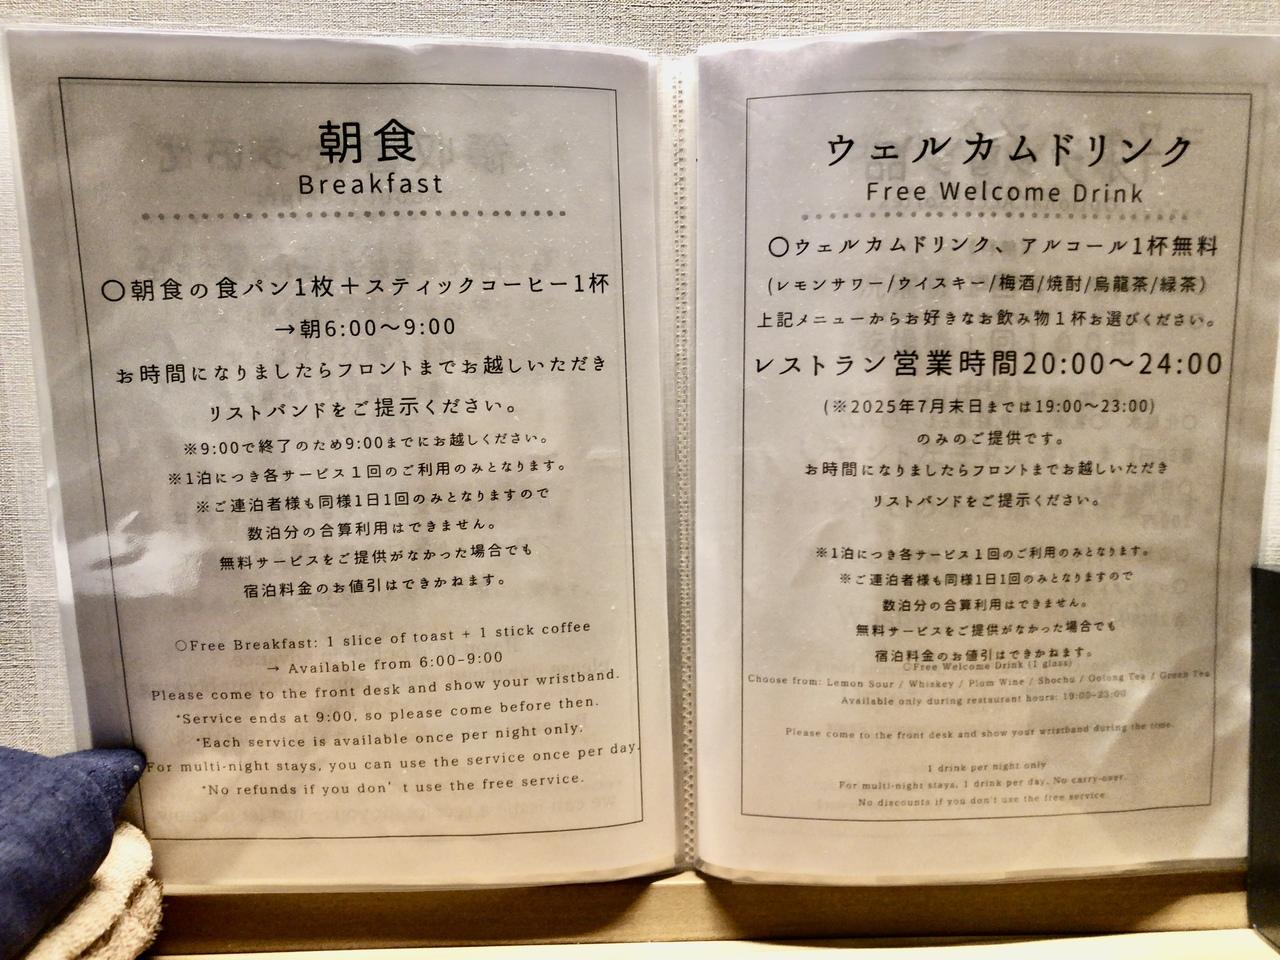 朝食
Breakfast
〇朝食の食パン1枚＋スティックコーヒー1杯
→朝6:00〜9:00
お時間になりましたらフロントまでお越しいただき
リストバンドをご提示ください。
※9:00で終了のため9:00までにお越しください。
※1泊につき各サービス１回のご利用のみとなります。
※ご連泊者様も同様1日1回のみとなりますので
数泊分の合算利用はできません。
無料サービスをご提供がなかった場合でも
宿泊料金のお値引はできかねます。
○Free Breakfast: 1 slice of toast + 1 stick coffee
→ Available from 6:00–9:00
Please come to the front desk and show your wristband.
*Service ends at 9:00, so please come before then.
*Each service is available once per night only.
For multi-night stays, you can use the service once per day.
*No refunds if you don’t use the free service.
ウェルカムドリンク
Free Welcome Drink
〇ウェルカムドリンク、アルコール1杯無料
(レモンサワー/ウイスキー/梅酒/焼酎/烏龍茶/緑茶)
上記メニューからお好きなお飲み物１杯お選びください。
レストラン営業時間20:00〜24:00
(※2025年7月末日までは19:00〜23:00)
のみのご提供です。
お時間になりましたらフロントまでお越しいただき
リストバンドをご提示ください。
※1泊につき各サービス１回のご利用のみとなります。
※ご連泊者様も同様1日1回のみとなりますので
数泊分の合算利用はできません。
無料サービスをご提供がなかった場合でも
宿泊料金のお値引はできかねます。
○Free Welcome Drink (1 glass)
Choose from: Lemon Sour / Whiskey / Plum Wine / Shochu / Oolong Tea / Green Tea
Available only during restaurant hours: 19:00–23:00
Please come to the front desk and show your wristband during the time.
1 drink per night only
For multi-night stays, 1 drink per day. No carry-over.
No discounts if you don't use the free service.